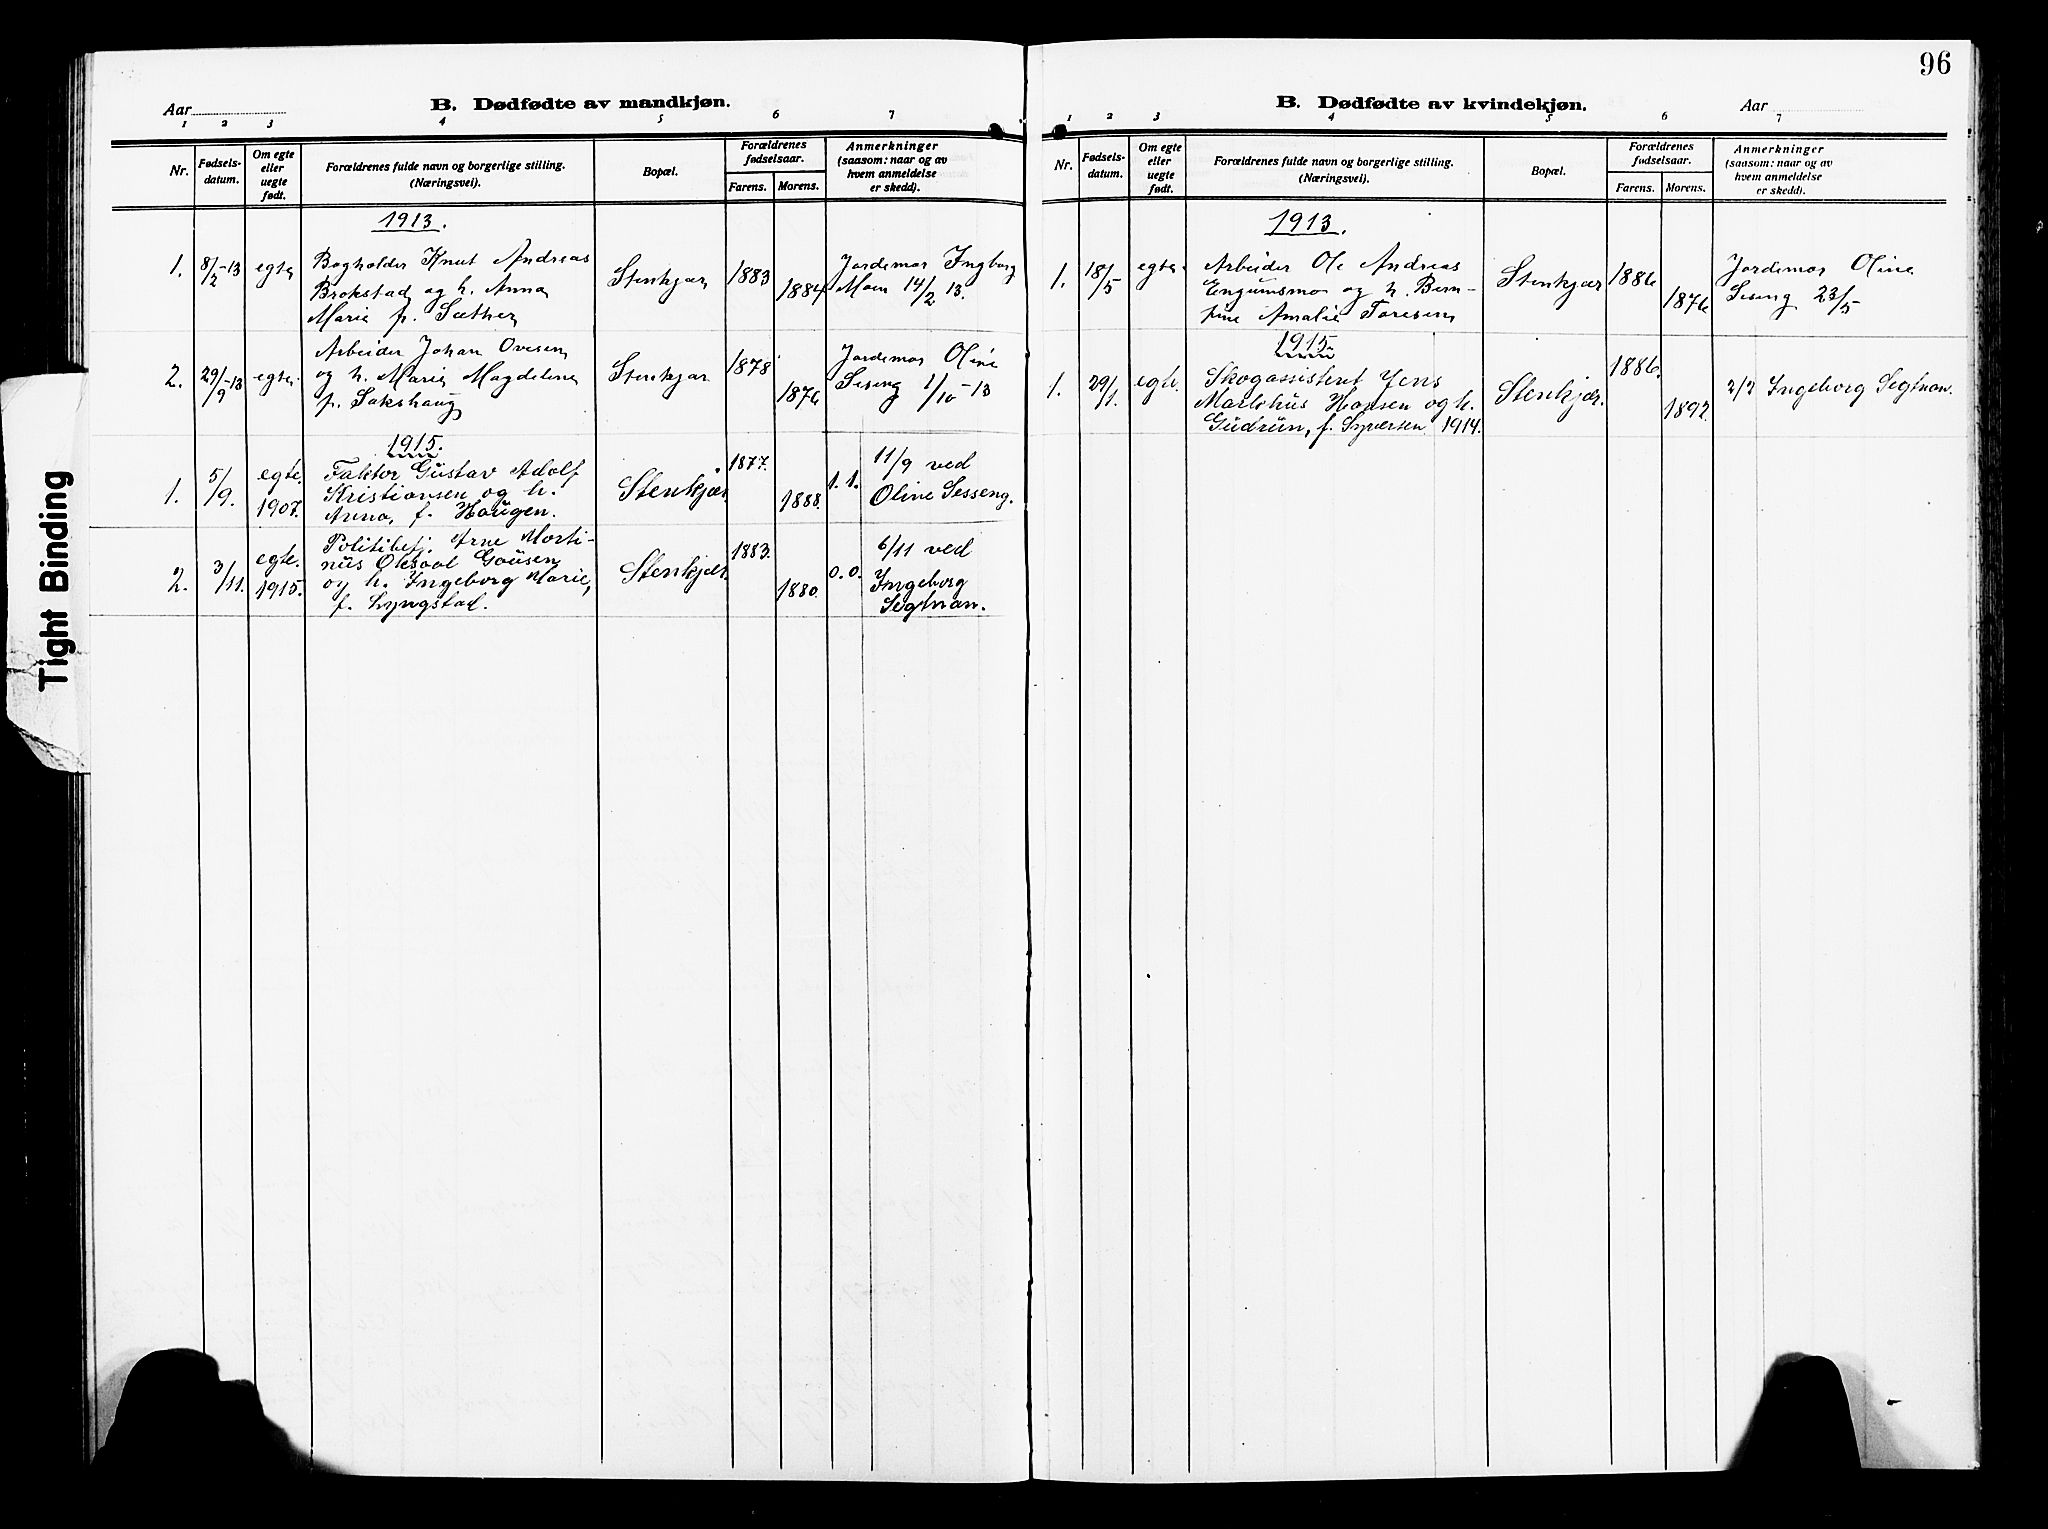 96
Aar
B. Dødfødte av mandkjøn.
1 2 3 4 5 6 7
Nr.
Fødsels-
datum.
Om egte
eller
uegte
født.
Forældrenes fulde navn og borgerlige stilling.
(Næringsvei).
Bopæl.
Forældrenes
fødselsaar.
Farens. Morens.
Anmerkninger
(saasom: naar og av
hvem anmeldelse
er skedd).
1913.
1. 8/2-13 egte
Bogholder Knut Andreas
Brokstad og h. Anna
Marie f. Sæther
Stenkjær 1883 1884
Jordemor Ingborg
Moen 14/2 13.
2. 29/9-13 egte
Arbeider Johan Ovesen
og h. Marie Magdelena
f. Sakshaug
Stenkjær 1878 1876
Jordemor Oline
Seseng 1/10-13
1915.
1. 5/9. egte. 1907.
Faktor Gustav Adolf
Kristiansen og h.
Anna, f. Haugen.
Stenkjær 1877. 1888. 1. 1.
11/9 ved
Oline Sesseng.
2. 3/11. egte. 1915.
Politibetj. Arne Morti-
nüs
og h. Ingeborg Marie,
f. Lyngstad.
Stenkjær 1883. 1880. 0. 0.
6/11 ved
Ingeborg
Segtnan.
B. Dødfødte av kvindekjøn.
Aar
1 2 3 4 5 6 7
Nr.
Fødsels-
datum.
Om egte
eller
uegte
født.
Forældrenes fulde navn og borgerlige stilling.
(Næringsvei).
Bopæl.
Forældrenes
fødselsaar.
Farens. Morens.
Anmerkninger
(saasom: naar og av
hvem anmeldelse
er skedd).
1913.
1. 18/5 egte
Arbeider Ole Andreas
Engumsmo og h. Bern-
tine Amalie Toresen
Stenkjær 1886 1876
Jordemor Oline
Seseng 23/5
1915.
1. 29/1. egte.
Skogassistent Jens
Markhüs Hansen og h.
Güdrün, f. Syversen 1914.
Stenkjær. 1886. 1892.
2/2 Ingeborg Segtnan.
Tight Binding